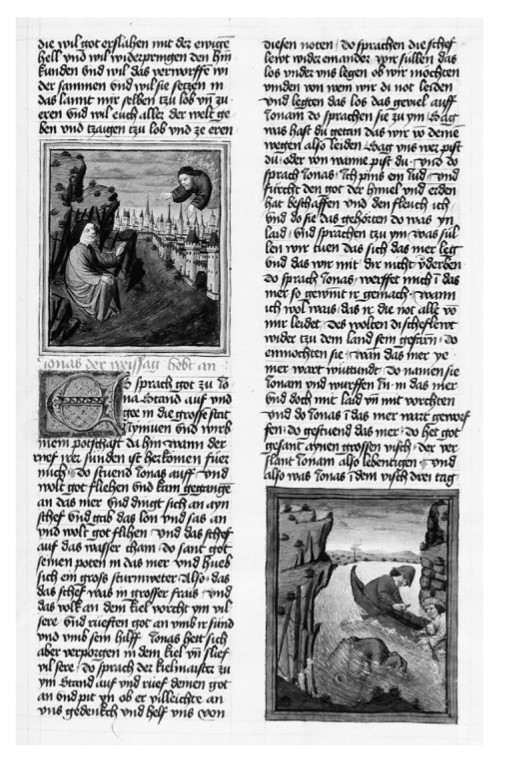 die wil got erslahen mit der ewige
hell vnd wil widerpringen den hin
kunden vnd wil das verworffe wi
der sammen vnd wil sie setzen in
das lannt mir selben tzu lob vn̄ zu
eren vnd wil euch aller der welt ge
ben vnd tzaigen tzu lob vnd ze eren
Jonas der weissag hebt an
Es sprach got zu Jo
na Stand auf vnd
gee in die grosse stat
Nyniuen vnd wirb
mein potschaft da hin wann der
mich do stuend Jonas auff vnd
wolt got fliehen vnd kam gegange
an das mer vnd dingt sich an ayn
schef vnd gab das lon vnd sas an
vnd wolt got flihen vnd das schef
auf das wasser cham do sant got
seinen poten in das mer vnd hueb
sich ein gross sturmweter Also das
das schef was in grosser frais vnd
das volk an dem kiel vorcht ym vil
sere vnd ruesten got an vmb ir sund
vnd vmb sein hilff Jonas hett sich
aber verporgen in dem kiel vn̄ slief
vil sere do sprach der kielmaister zu
ym Stand auf vnd ruef deinen got
an vnd pit yn ob er villeichte an
vns gedenkch vnd helf vns von
diesen noten do sprachen die schef
lewt wider einander wir sullen das
los vnder vns legen ob wir mochten
vinden von wem wir di not leiden
vnd legten das los das geviel auff
Jonam do sprachen sie zu ym Sag
was hast du getan das wir vo deine
wegen also leiden Sag vns wer pist
du oder von wanne pist du vnd do
sprach Jonas Ich pins ein Iud vnd
furcht den got der himel vnd erden
hat beschaffen vnd den fleuch ich
vnd do sie das gehorten do was yn
laid vnd sprachen tzu ym was sul
len wir tuen das sich das mer leg
vnd das wir mit dir nicht v̄derben
do sprach Jonas werffet mich ī das
mer so gewint ir gemach wann
ich wol wais das ir die not alle vo
mir leidet des wolten di scheflewt
wider tzu dem land sein gefarn do
enmochten sie wan das mer ye
mer wart wuttundt do namen sie
Jonam vnd wurffen in in das mer
vnd doch mit laid vn̄ mit vorchten
vnd do Jonas ī das mer wart gewor
fen do gestuend das mer do het got
gesant aynen grossen visch der ver
slant Jonam also lebentigen vnd
also was Jonas ī dem visch drei tag